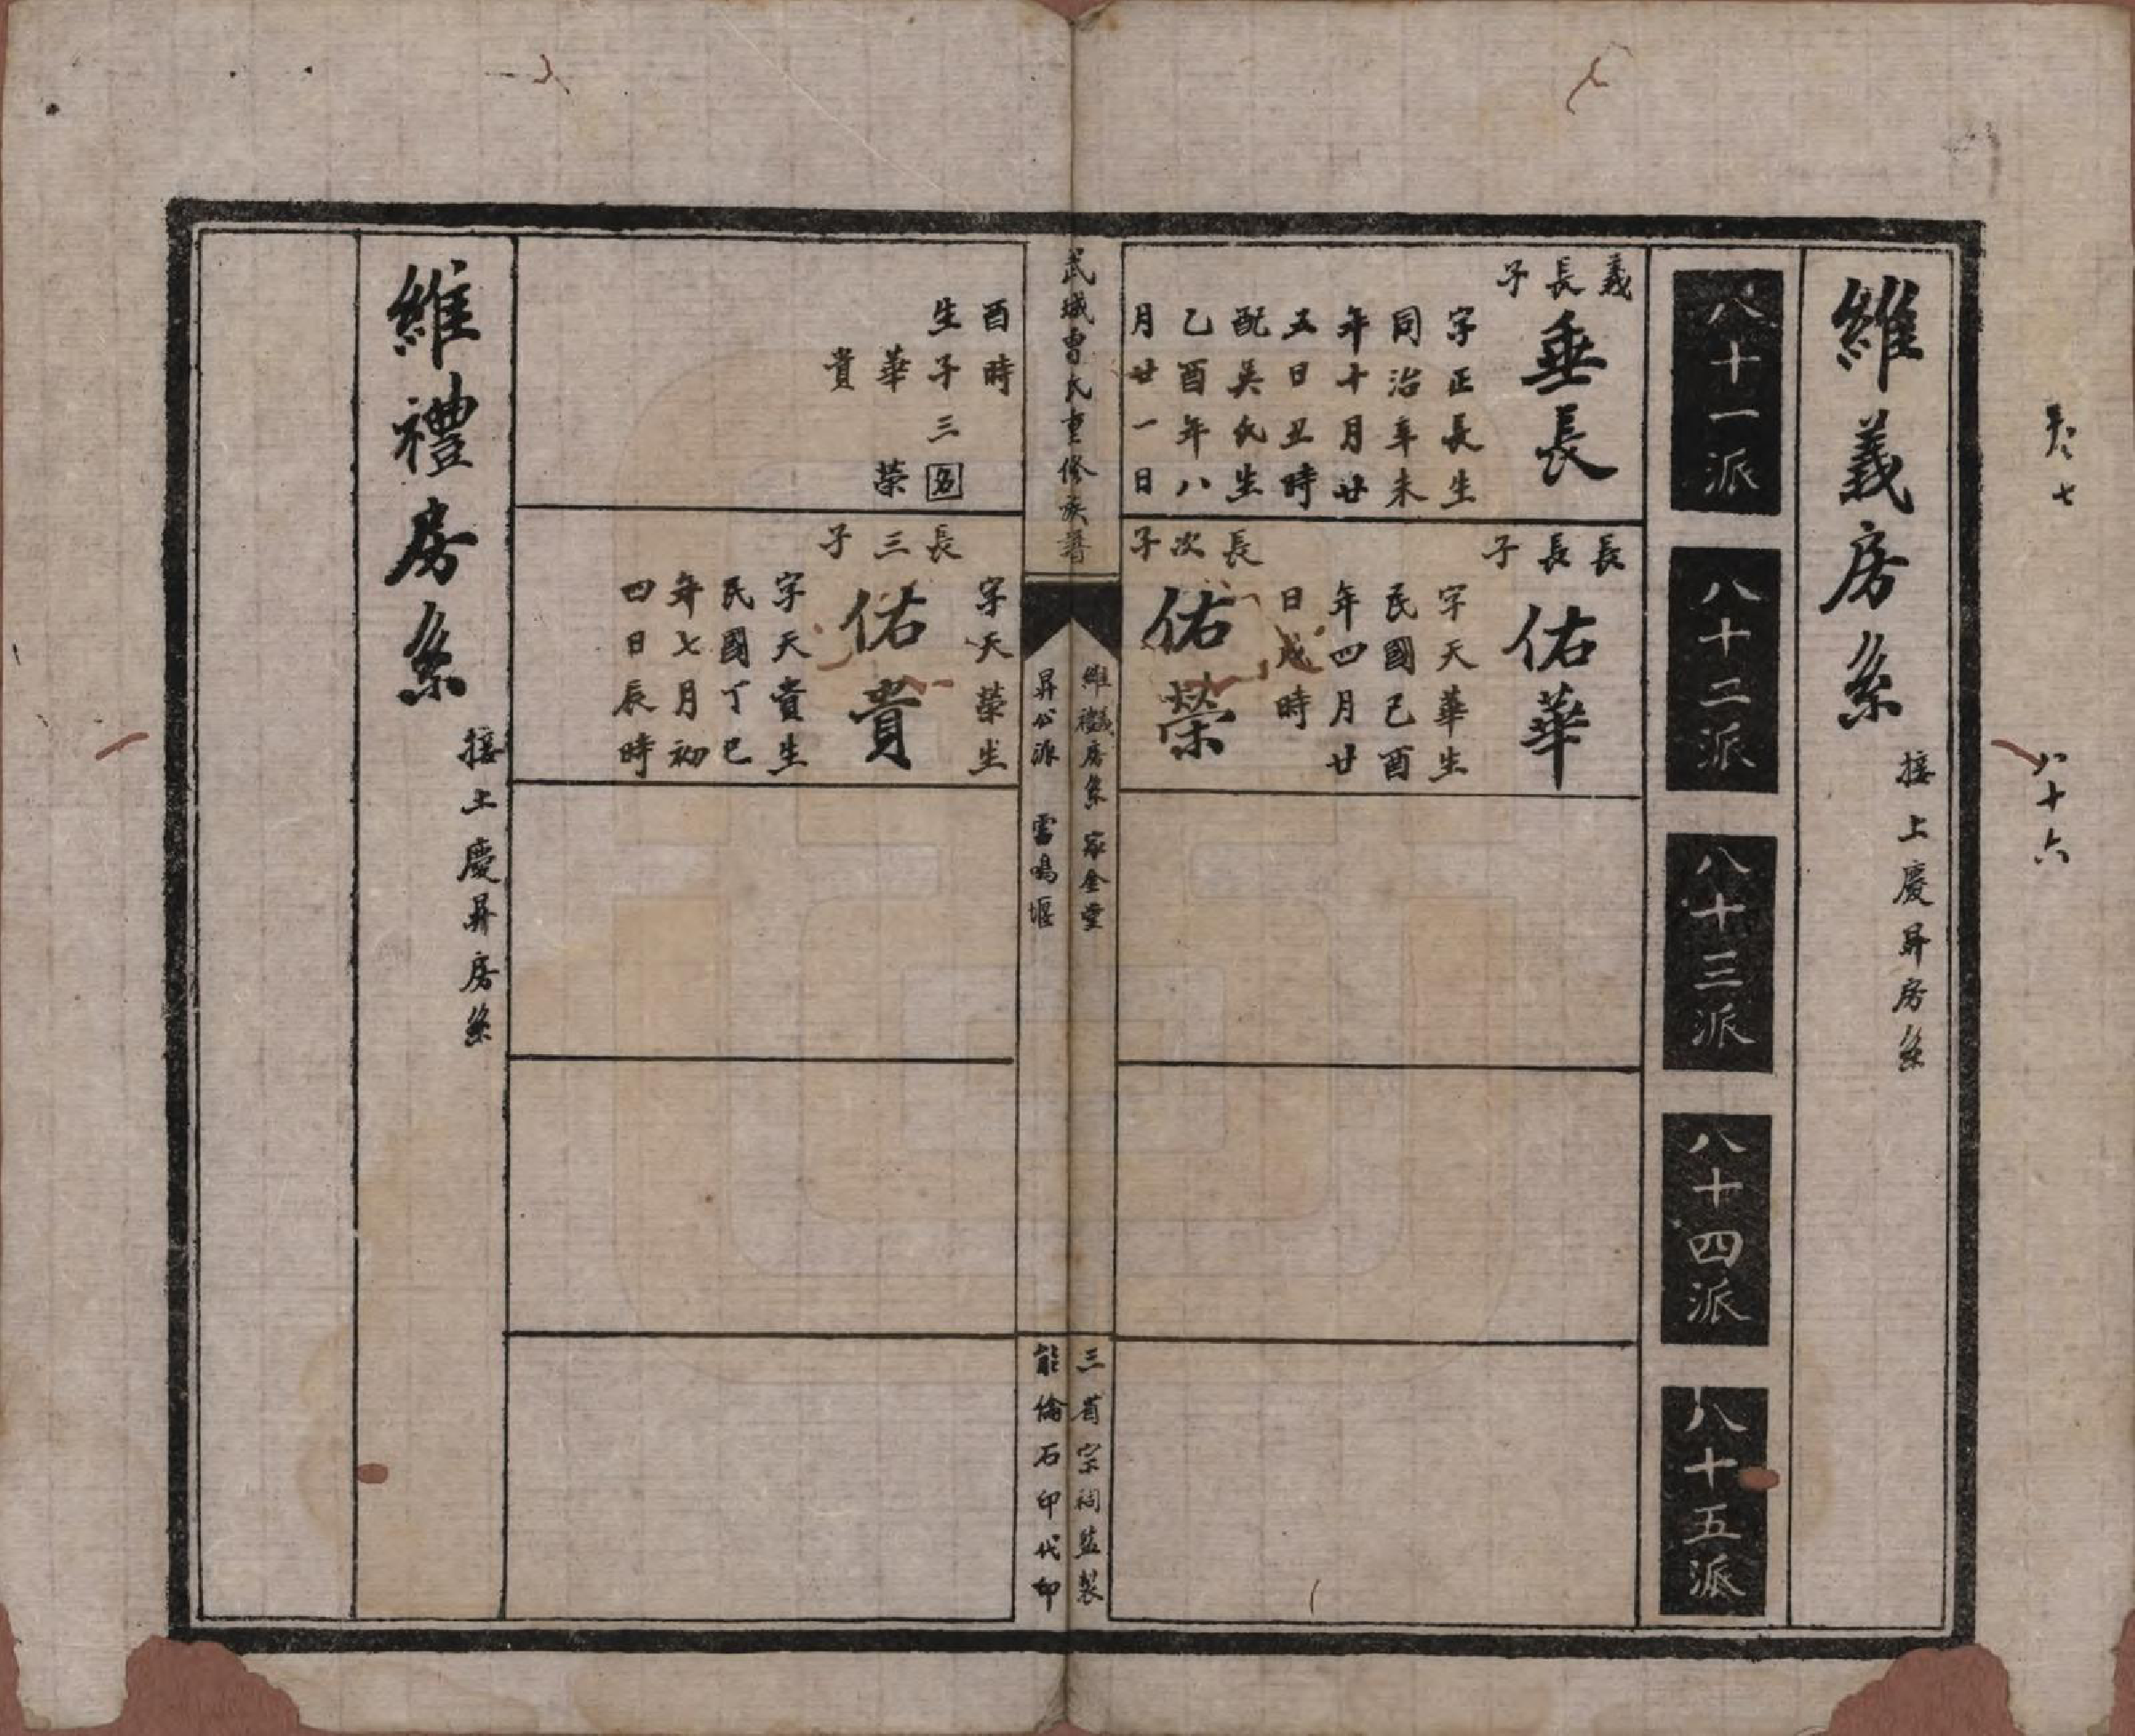 卷七
八十六
維義房系
接上慶昇房系
八十一派
八十二派
八十三派
八十四派
八十五派
義長子
垂長
字正長生
同治辛未
年十月廿
五日丑時
配吳氏生
乙酉年八
月廿一日
酉時
生子三名
華 榮
貴
長長子
佑華
字天華生
民國己酉
年四月廿
日戌時
長次子
佑榮
字天榮生
長三子
佑貴
字天貴生
民國丁巳
年七月初
四日辰時
武城曾氏重修族譜
維義禮房系 家金堂
昇公派 雷鳴堰
三省宗祠監製
能倫石印代印
維禮房系
接上慶昇房系